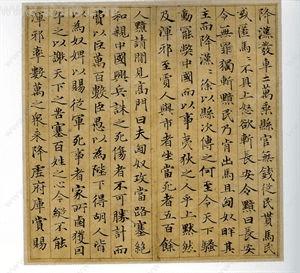 降漢發車二萬乘縣官無錢從民貰馬民
或匿馬々不具上怒欲斬長安令黯曰長安
令無罪獨斬黯民乃肯出馬且匈奴畔其
主而降漢々徐以縣次傳之何至令天下騷
動罷獘中國而以事夷狄之人乎上默然
及渾邪至賈人與市者坐當死者五百餘
人黯請間見高門曰夫匈奴攻當路塞絕
和親中國興兵誅之死傷者不可勝計而
費以巨萬百數臣愚以為陛下得胡人皆
以為奴婢以賜從軍死事者家所鹵獲因
予之以謝天下之苦塞百姓之心今縱不能
渾邪率數萬之衆來降虛府庫賞賜